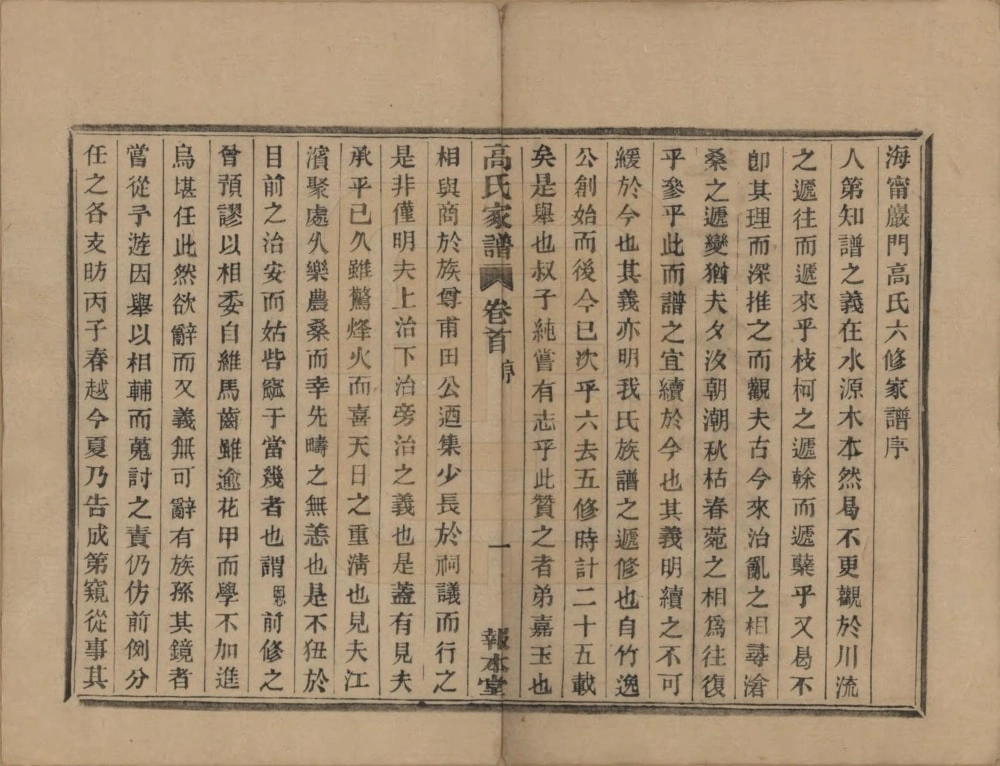 海甯巖門高氏六修家譜序
人第知譜之義在水源木本然曷不更觀於川流
之遞往而遞來乎枝柯之遞榦而遞櫱乎又曷不
卽其理而深推之而觀夫古今來治亂之相尋滄
桑之遞變猶夫夕汐朝潮秋枯春菀之相爲往復
乎參乎此而譜之宜續於今也其義明續之不可
緩於今也其義亦明我氏族譜之遞修也自竹逸
公創始而後今已次乎六去五修時計二十五載
矣是舉也叔子純嘗有志乎此贊之者弟嘉玉也
高氏家譜 卷首 序 一 報本堂
相與商於族尊甫田公迺集少長於祠議而行之
是非僅明夫上治下治旁治之義也是蓋有見夫
承平已久雖驚烽火而喜天日之重淸也見夫江
濱聚處久樂農桑而幸先疇之無恙也是不狃於
目前之治安而姑呰窳于當幾者也謂恩前修之
曾預謬以相委自維馬齒雖逾花甲而學不加進
烏堪任此然欲辭而又義無可辭有族孫其鏡者
嘗從予遊因舉以相輔而蒐討之責仍仿前例分
任之各支昉丙子春越今夏乃告成第窺從事其